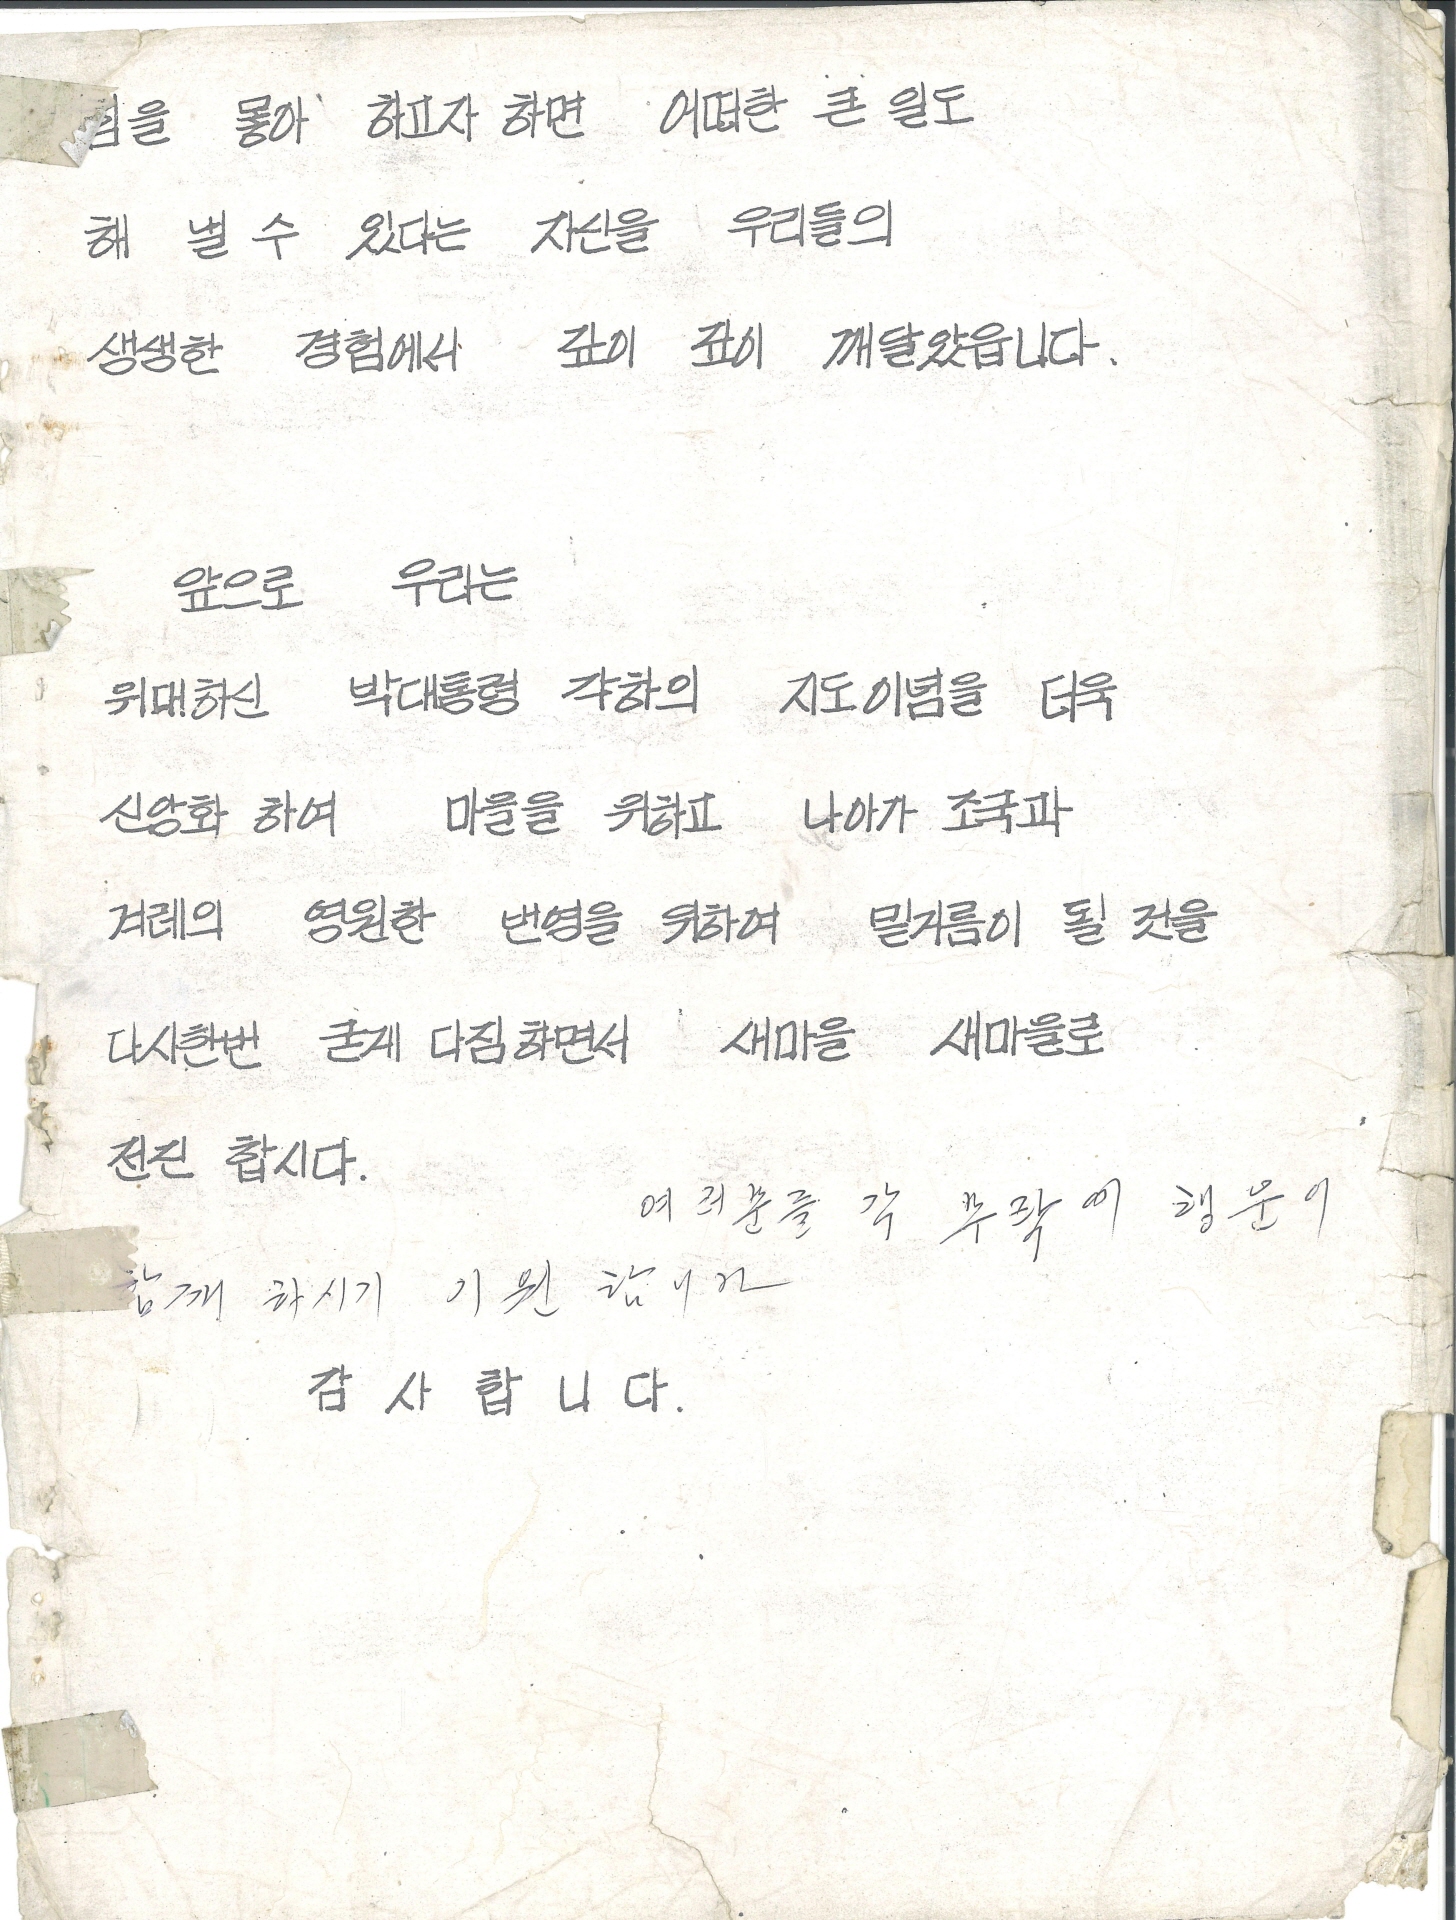 힘을 몽아 하고자 하면 어떠한 큰 일도
해 낼 수 있다는 자신을 우리들의
생생한 경험에서 깊이 깊이 깨달았읍니다.
앞으로 우리는
위대하신 박대통령 각하의 지도이념을 더욱
신앙화 하여 마을을 위하고 나아가 조국과
겨레의 영원한 번영을 위하여 밑거름이 될 것을
다시한번 굳게 다짐하면서 새마을 새마을로
전진 합시다.
여러분들 각 부락에 행운이
함께 하시기 기원 합니다
감 사 합 니 다.